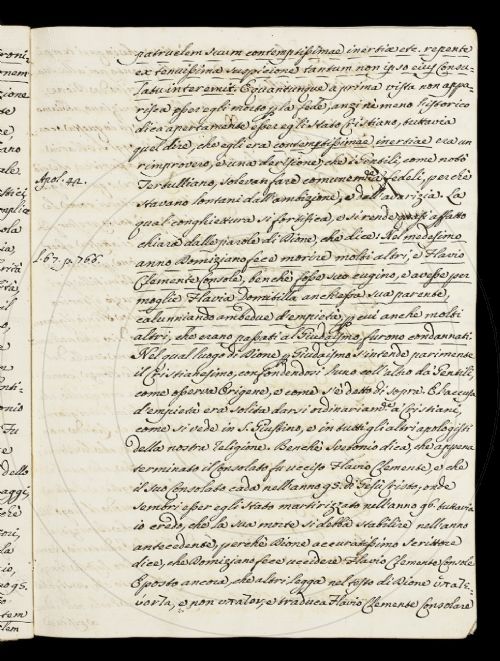 patruelem suum contemptissimae inertiae etc. repente
ex tenuissima suspicione tantum non ipso ejus Consu-
latu interemit. E quantunque a prima vista non appa-
risca esser egli morto p la fede, anzi ne meno l'istorico
dica apertamente esser egli stato Cristiano, tuttavia
quel dire, che egli era contemptissimae inertiae era un
rimprovero, e una derisione, che i Gentili, come notò
Apol. 42.
Tertulliano, solevan fare comunem.te a' fedeli, perche
stavano lontani dall'ambizione, e dall'avarizia. La
qual conghiettura si fortifica, e si rende quasi affatto
chiara dalle parole di Dione, che dice: Nel medesimo
L. 67. p. 766.
anno Domiziano fece morire molti altri, e Flavio
Clemente Console, benchè fosse suo cugino, e avesse per
moglie Flavia Domitilla anch'essa sua parente,
calunniando ambedue d'empietà, p cui anche molti
altri, che erano passati al Giudaismo, furono condannati.
Nel qual luogo di Dione p Giudaismo s'intende parimente
il Cristianesimo, confondendosi l'uno coll'altro da' Gentili,
come osserva Origene, e come s'è detto di sopra. E l'accusa
d'empietà era solita darsi ordinariam.te a' Cristiani,
come si vede in S. Giustino, e in tutti gli altri apologisti
della nostra religione. Benchè Svetonio dica, che appena
terminato il Consolato fu ucciso Flavio Clemente, e che
il suo Consolato cada nell'anno 95. di Gesù Cristo, onde
sembri esser egli stato martirizzato nell'anno 96. tuttavia
io credo, che la sua morte si debba stabilire nell'anno
antecedente, perchè Dione accuratissimo Scrittore
dice, che Domiziano fece uccidere Flavio Clemente Console
E posto ancora, che altri legga nel testo di Dione
e non e traduca Flavio Clemente Consolare